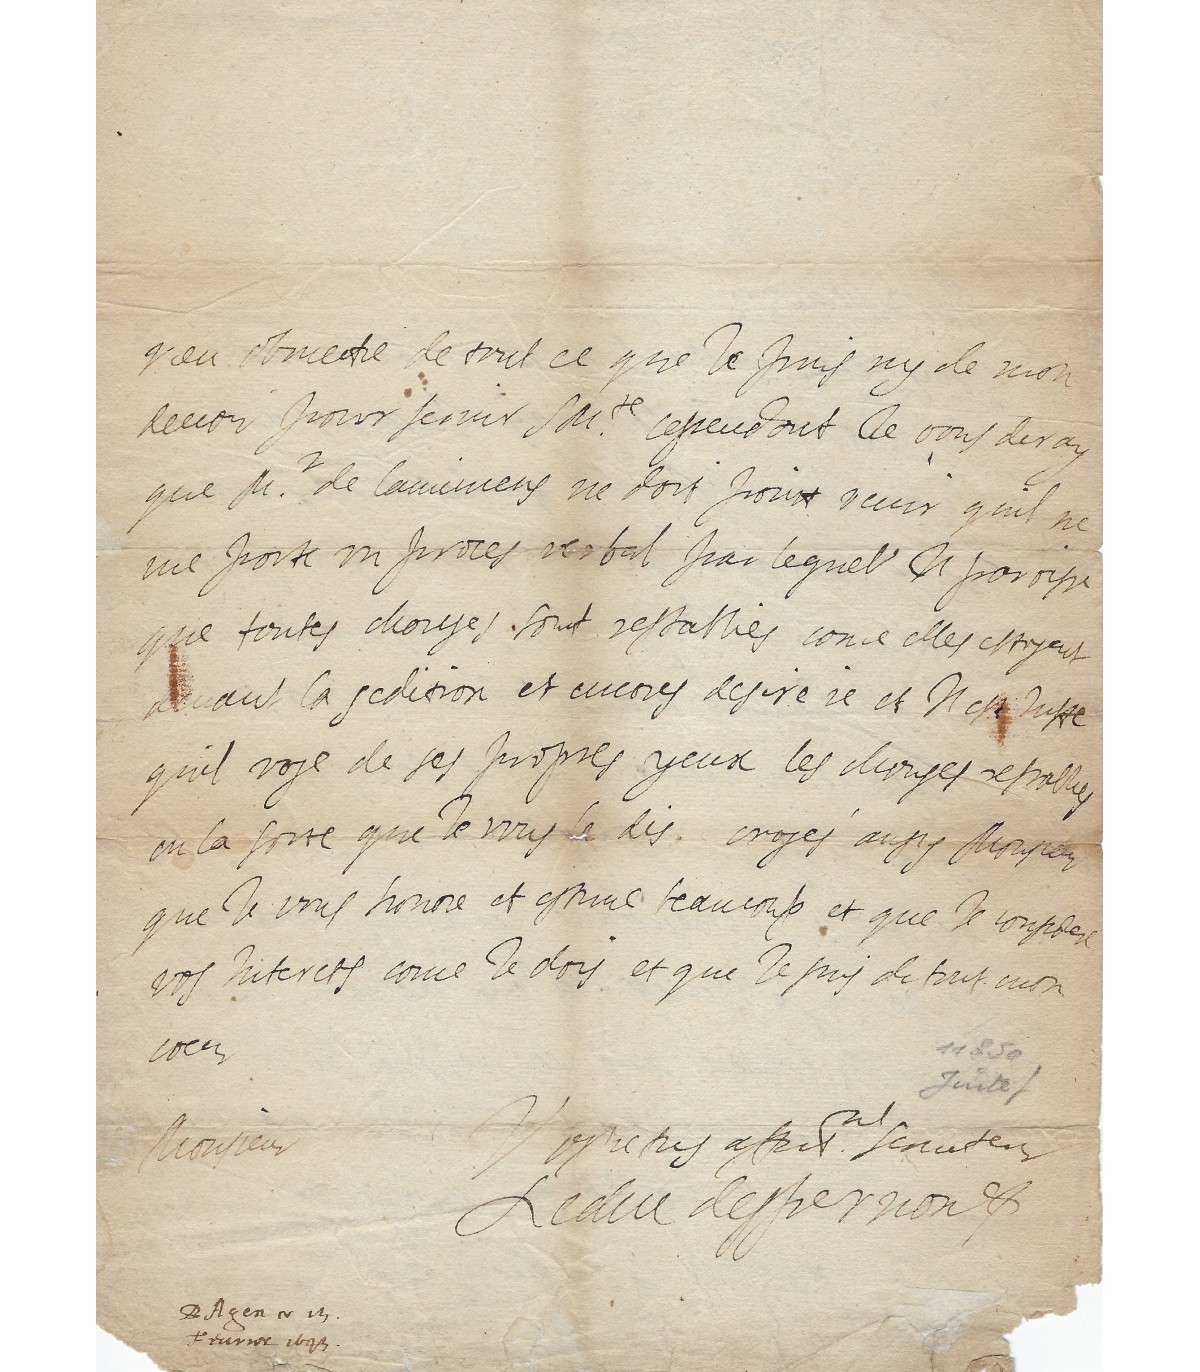 rien obmectre de tout ce que Je puis ny de mon
devoir pour servir S M.te cependant Je vous diray
que M.r de ne doit point venir quil ne
me porte un proces verbal par lequel Il paroisse
que toutes choses sont restablies come elles estoyent
devant la sedition et encores desire ie et Il est Juste
quil voye de ses propres yeux les choses restablies
en la sorte que Je vous le dis. croyés aussy Monsieur
que Je vous honore et estime beaucoup et que Je considere
vos Interests come Je dois et que Je suis de tout mon
coeur
11850
Monsieur
Vostre tres affect.né serviteur
Le duc despernon
A Agen ce